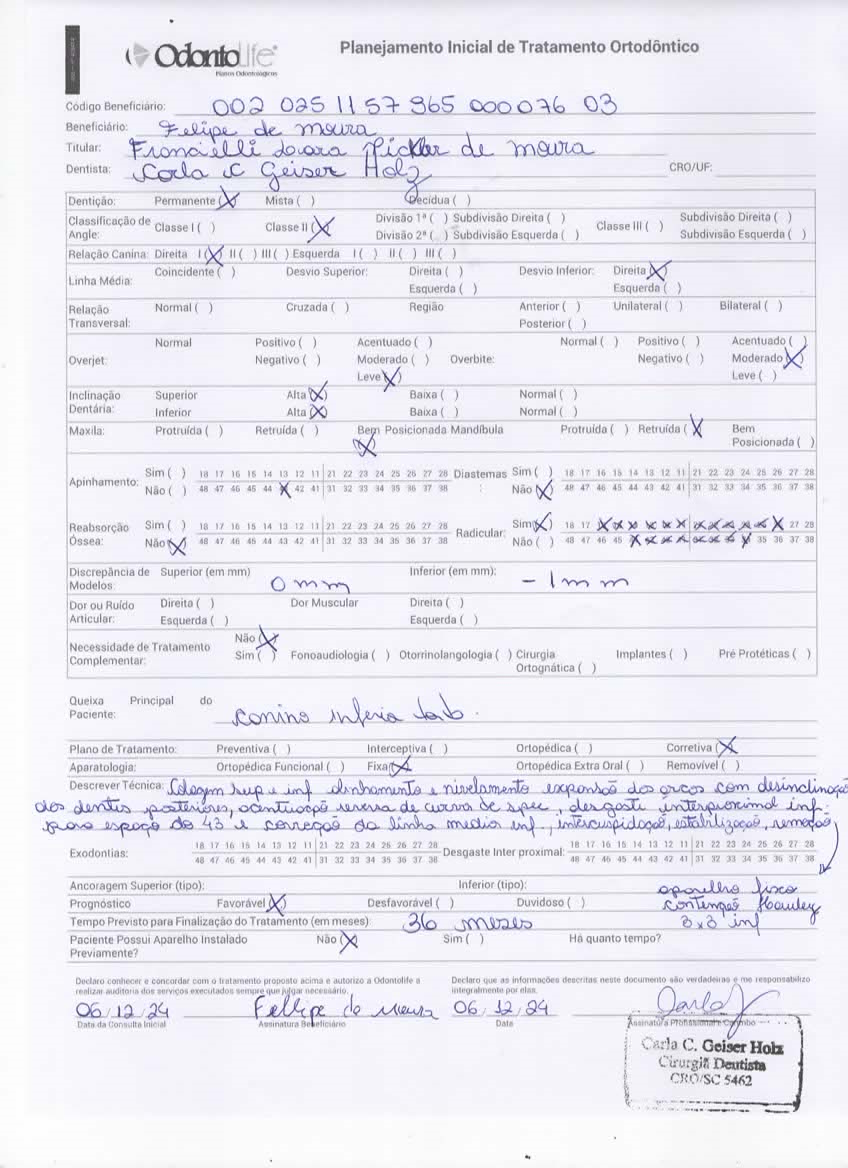 OdontoLife
Planos Odontológicos
Planejamento Inicial de Tratamento Ortodôntico
Código Beneficiário: 002 025 11 57 365 000076 03
Beneficiário: Felipe de moura
Titular: Francielli de moura
Dentista: Carla C Geiser Holz CRO/UF:
Dentição: Permanente (X) Mista ( ) Decídua ( )
Classificação de Angle: Classe I ( ) Classe II (X) Divisão 1ª ( ) Subdivisão Direita ( ) Classe III ( ) Subdivisão Direita ( )
Divisão 2ª ( ) Subdivisão Esquerda ( ) Subdivisão Esquerda ( )
Relação Canina: Direita I (X) II ( ) III ( ) Esquerda I ( ) II ( ) III ( )
Linha Média: Coincidente ( ) Desvio Superior: Direita ( ) Desvio Inferior: Direita (X)
Esquerda ( ) Esquerda ( )
Relação Transversal: Normal ( ) Cruzada ( ) Região Anterior ( ) Unilateral ( ) Bilateral ( )
Posterior ( )
Overjet: Normal Positivo ( ) Acentuado ( ) Overbite: Normal ( ) Positivo ( ) Acentuado ( )
Negativo ( ) Moderado ( ) Negativo ( ) Moderado (X)
Leve (X) Leve ( )
Inclinação Dentária: Superior Alta (X) Baixa ( ) Normal ( )
Inferior Alta (X) Baixa ( ) Normal ( )
Maxila: Protruída ( ) Retruída ( ) Bem Posicionada (X) Mandíbula Protruída ( ) Retruída (X) Bem Posicionada ( )
Apinhamento: Sim ( ) 18 17 16 15 14 13 12 11 21 22 23 24 25 26 27 28 Diastemas: Sim ( ) 18 17 16 15 14 13 12 11 21 22 23 24 25 26 27 28
Não ( ) 48 47 46 45 44 X 42 41 31 32 33 34 35 36 37 38 Não (X) 48 47 46 45 44 43 42 41 31 32 33 34 35 36 37 38
Reabsorção Óssea: Sim ( ) 18 17 16 15 14 13 12 11 21 22 23 24 25 26 27 28 Radicular: Sim (X) 18 17 X X X X X X X X X X X X 27 28
Não (X) 48 47 46 45 44 43 42 41 31 32 33 34 35 36 37 38 Não ( ) 48 47 46 45 X X X X X X X X 35 36 37 38
Discrepância de Modelos: Superior (em mm) 0 mm Inferior (em mm): - 1 mm
Dor ou Ruído Articular: Direita ( ) Dor Muscular Direita ( )
Esquerda ( ) Esquerda ( )
Necessidade de Tratamento Complementar: Não (X)
Sim ( ) Fonoaudiologia ( ) Otorrinolangologia ( ) Cirurgia Ortognática ( ) Implantes ( ) Pré Protéticas ( )
Queixa Principal do Paciente: canino inferia
Plano de Tratamento: Preventiva ( ) Interceptiva ( ) Ortopédica ( ) Corretiva (X)
Aparatologia: Ortopédica Funcional ( ) Fixa (X) Ortopédica Extra Oral ( ) Removível ( )
Descrever Técnica: Colagem sup e inf alinhamento e nivelamento expansão dos arcos com desinclinação
dos dentes posteriores, acentuação reversa de curva de spee, desgaste interproximal inf.
para espaço do 43 e correção da linha media inf, intercuspidação, estabilização, remoção
Exodontias: 18 17 16 15 14 13 12 11 21 22 23 24 25 26 27 28 Desgaste Inter proximal: 18 17 16 15 14 13 12 11 21 22 23 24 25 26 27 28
48 47 46 45 44 43 42 41 31 32 33 34 35 36 37 38 48 47 46 45 44 43 42 41 31 32 33 34 35 36 37 38
Ancoragem Superior (tipo): Inferior (tipo): aparelho fixo
Prognóstico Favorável (X) Desfavorável ( ) Duvidoso ( ) contenção Hawley
Tempo Previsto para Finalização do Tratamento (em meses): 36 meses 3x3 inf
Paciente Possui Aparelho Instalado Previamente? Não (X) Sim ( ) Há quanto tempo?
Declaro conhecer e concordar com o tratamento proposto acima e autorizo a Odontolife a
realizar auditoria dos serviços executados sempre que julgar necessário.
Declaro que as informações descritas neste documento são verdadeiras e me responsabilizo
integralmente por elas.
06/12/24 Fellipe de Moura 06/12/24 Carla
Data da Consulta Inicial Assinatura Beneficiário Data Assinatura Profissional e Carimbo
Carla C. Geiser Holz
Cirurgiã Dentista
CRO/SC 5462